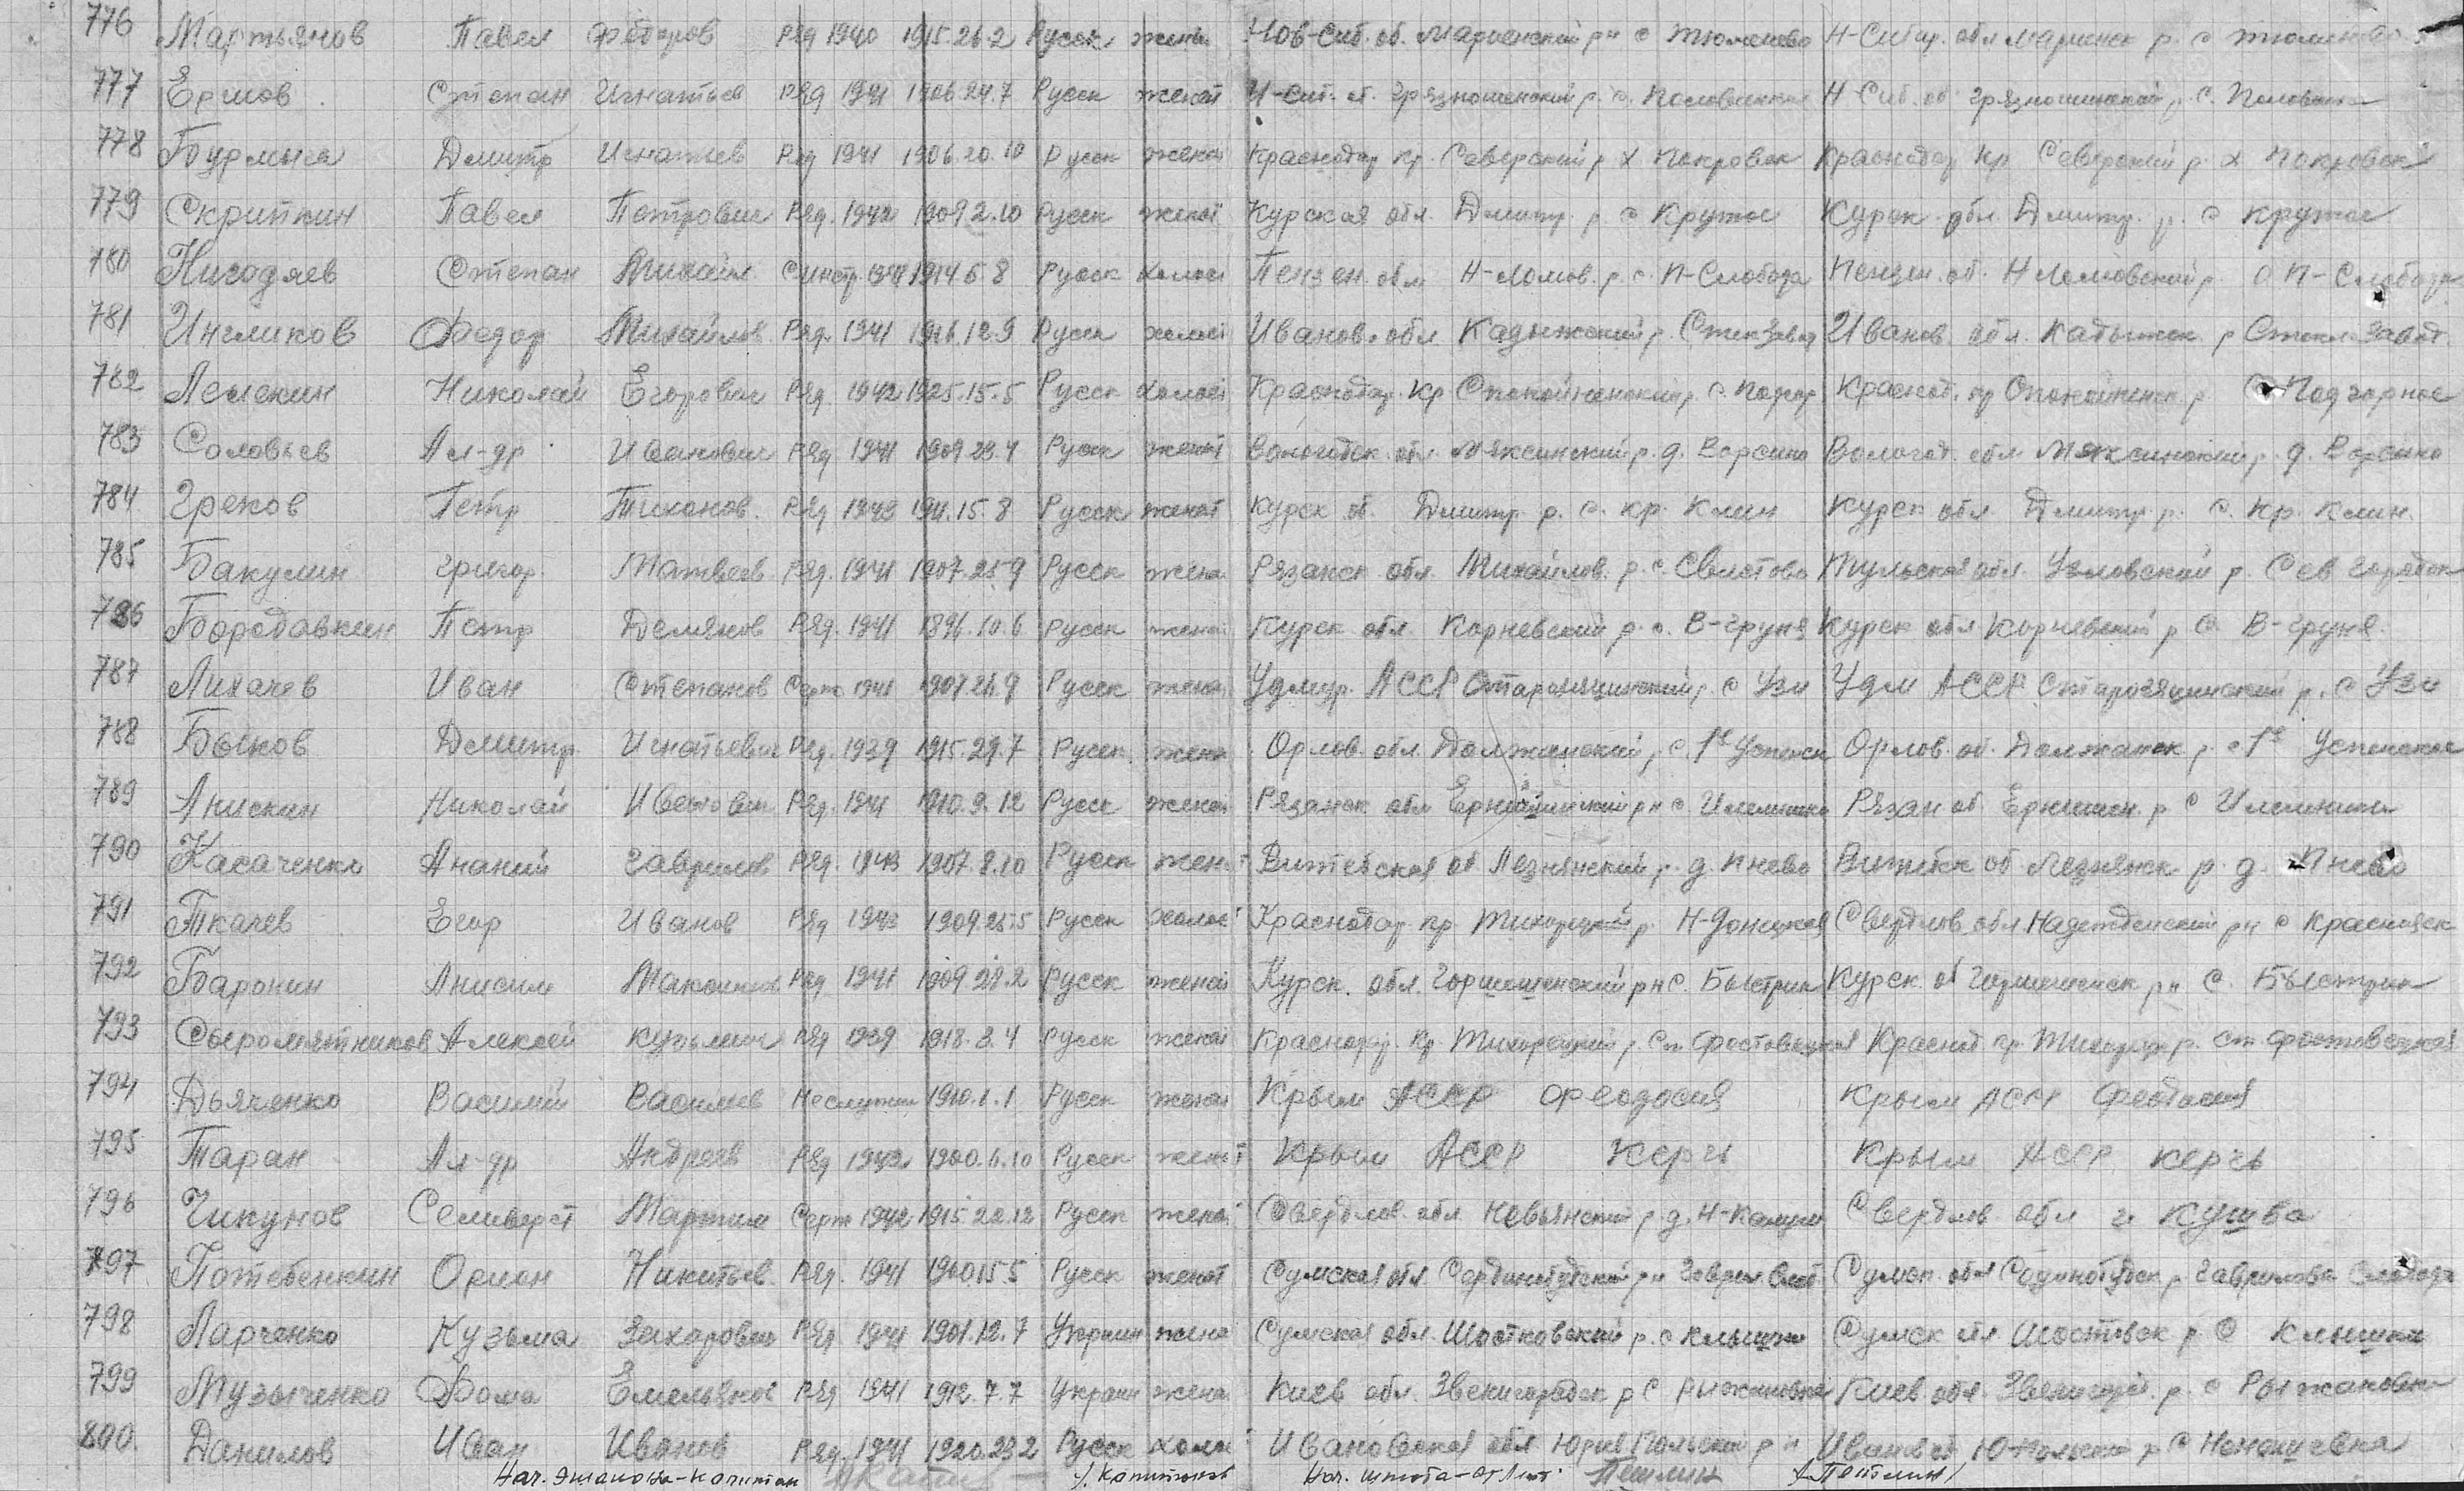 776 Мартьянов Павел Федоров Ряд 1940 1915.26.2 Русск женат Нов-Сиб. об. Мариенский рн с Тюменево Н-Сибир. обл Мариинск р. с Тюменево
777 Ершов Степан Игнатьев Ряд 1941 1906.24.7 Русск женат Н-Сиб. об. Грязношенский р. с. Н-Сиб. об. р. с.
778 Бурмыга Дмитр Игнатьев Ряд 1941 1906.20.10 Русск женат Краснодар кр. Северский р х Покровск Краснодар кр Северский р. х Покровск
779 Скрипкин Павел Петрович Ряд. 1942 1909 2.10 Русск женат Курская обл. Дмитр. р. с Кружое Курск. обл. Дмитр. р. с Кружое
780 Нигодяев Степан Михайл. 1914 6 8 Русск холост Пензен. обл Н-Ломов. р. с. П-Слобода Пензен. об. Н Ломовский р. с П-Слобода
781 Ингликов Федор Михайлов Ряд. 1941 1916.12.9 Русск холост Иванов. обл. Кадыжский р. Стек Завод Иванов. обл. Кадыжск р Стекл. Завод.
782 Лемекин Николай Егорович Ряд. 1942 1925.15.5 Русск холост Краснодар. Кр Спокойненский р. с. Подгор Краснод. кр Спокойненск. р. с Подгорное
783 Соловьев Ал-др Иванович Ряд 1941 1909.23.4 Русск женат Вологодск. обл. Мяксинский р. д. Ворсино Вологод. обл Мяксинский р. д. Ворсино
784 Греков Петр Тихонов. Ряд 1943 1911.15.8 Русск женат Курск об. Дмитр. р. с. Кр. Клин Курск обл. Дмитр р. с. Кр. Клин.
785 Бакулин Григор. Матвеев Ряд. 1941 1907.25.9 Русск жена Рязанск обл. Михайлов. р. с. Свистово Тульская обл. Узловский р. Сев городок
786 Бородавкин Петр Демянов Ряд. 1941 1896.10.6 Русск женат Курск обл. Корневский р. с. В-груня Курск обл Корневский р с В-груня.
787 Лихачев Иван Степанов Серж 1941 1907.26.9 Русск женат Удмур. АССР Старозяцинский р. с Узи Удм АССР Старозяцинский р. с Узи
788 Быков Дмитр. Игнатьевич Ряд. 1939 1915.29.7 Русск. жена Орлов. обл. Должанский р с. 1е Успенск Орлов. об. Должанск р. с 1е Успенское
789 Анискин Николай Иванович Ряд. 1941 1910.9.12 Русск женат Рязанск обл Ернишинский рн с. Рязан об. Ернишин. р с
790 Касаченко Ананий Гаврилов Ряд. 1943 1907.8.10 Русск жен Витебская об Лезнянский р. д. Пнево Витебск об Лезнянск р. д. Пнево
791 Ткачев Егор Иванов Ряд 1943 1909.25.5 Русск холост Краснодар кр. Тихорецкий р. Н-Донецкая Свердлов. обл. Надеждинский рн с Краснояск
792 Баронин Анисим Максимов Ряд 1941 1909.28.2 Русск женат Курск. обл. Горшешенский рн с. Быстрик Курск. об Горшешенск рн с. Быстрик
793 Сыромятников Алексей Кузьмич Ряд 1939 1918.3.4 Русск женат Краснодар. Кр. Тихорецкий р. Ст Фостовецкая Краснод кр. Тихорецк р. ст. Фостовецкая
794 Дьяченко Василий Васильев Неслужил 1910.1.1 Русск женат Крым АССР Феодосия Крым АССР Феодосия
795 Таран Ал-др Андреев Ряд 1942 1900.6.10 Русск женат Крым АССР Керчь Крым АССР Керчь
796 Чикунов Селиверст Мартим Серж 1942 1915.22.12 Русск женат Свердлов. обл. Невьянский р д. Н- Свердлов. обл г. Кушва
797 Потебенкин Орион Никитьев Ряд. 1941 1900.15 5 Русск женат Сумская обл. рн Гаврил Слоб Сумск. обл р. Гаврилова Слобода
798 Ларченко Кузьма Захарович Ряд 1941 1901.12.7 Украин жена Сумская обл. Шостковский р. с Клышки Сумск обл. Шостовск р. с Клышки
799 Музыченко Фома Емельянов Ряд 1941 1912.7.7 Украин жена Киев обл. Звенигородск р с Рыжановка Киев. обл. Звенигород. р. с Рыжановка
800. Данилов Иван Иванов Ряд. 1941 1920.23 2 Русск холост Ивановская обл Юрив Польский рн Ивановск Ю-Польский р с
Нач. Эшалона-капитан /. Капитонов Нач. Штаба-ст Лейт. Петлин /Петлин/